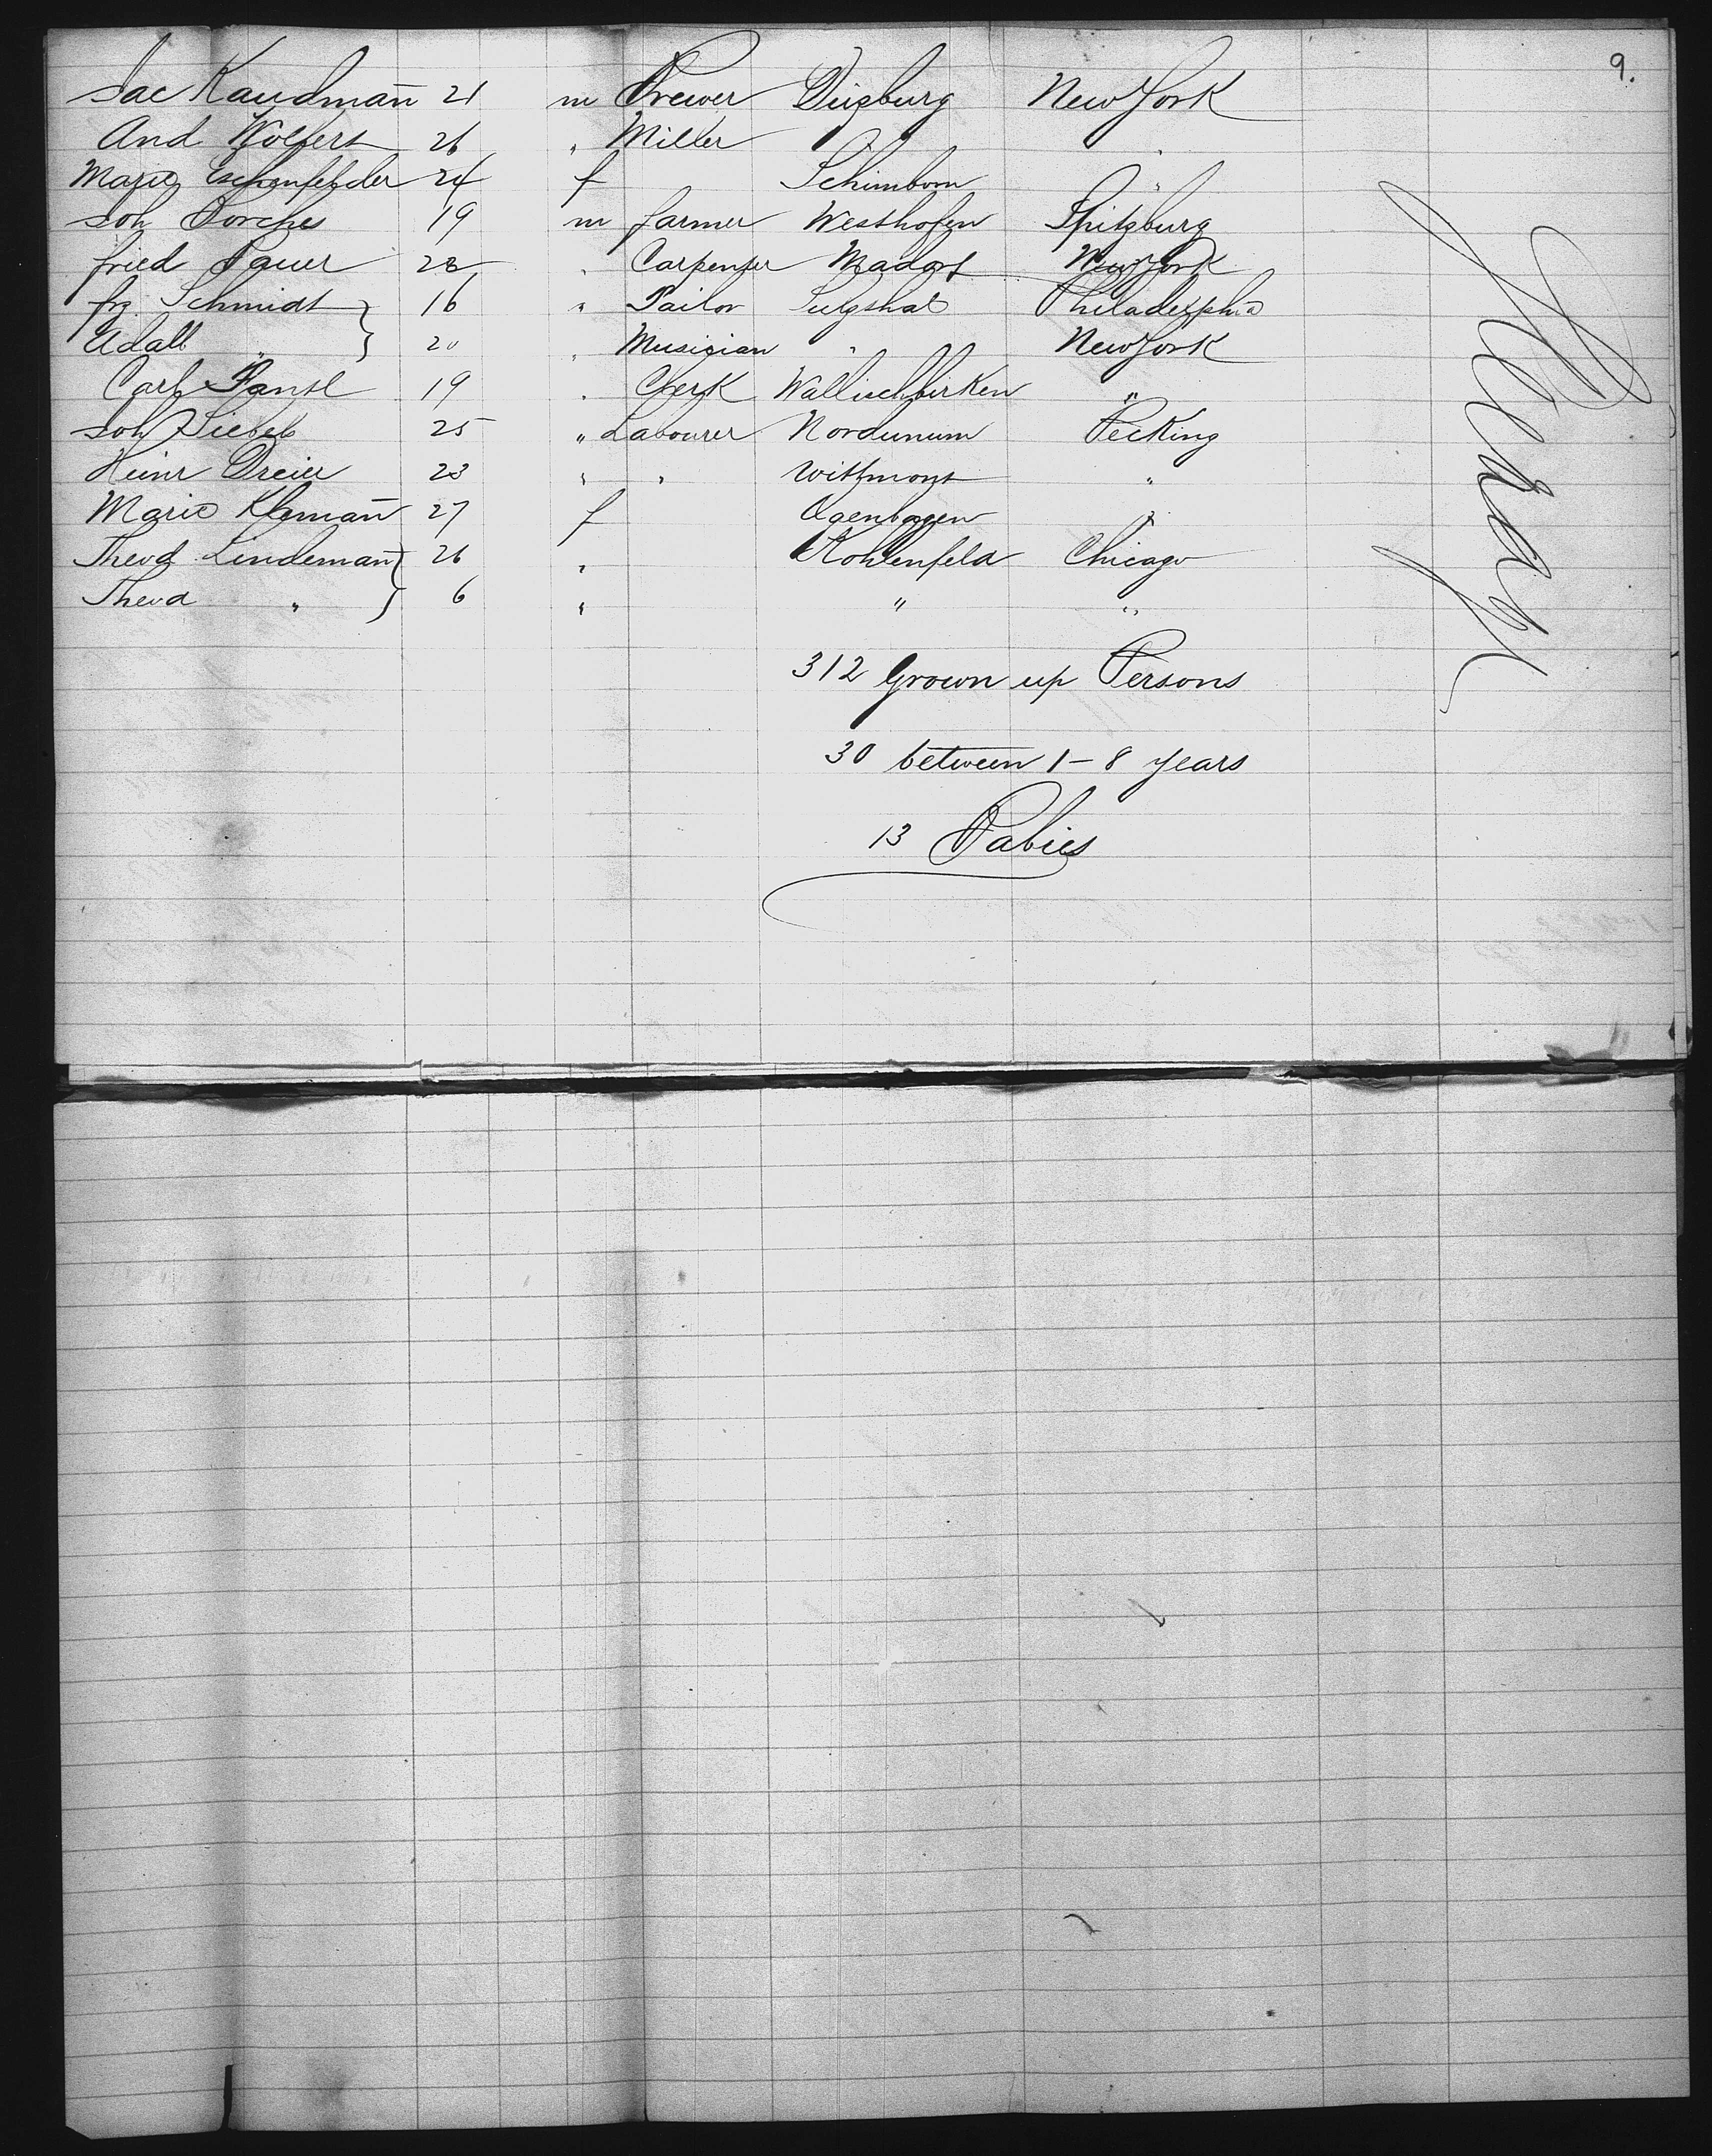 9.
Jac Kaudmañ 21 m Brewer Duisburg New York
And Wolfert 26 " Miller " "
Marie Eschenfelder 24 f Schimborn "
Joh Borches 19 m farmer Westhofen Spitzburg
fried Bauer 28 " Carpenter Madorf New York
frz. Schmidt } 16 " Tailor Sulzthal Philadelphia
Adalb " } 20 " Musician " New York
Carl 19 " Clerk "
Joh Siebel 25 " Labourer Pecking
Heinr Dreier 23 " " "
Marie Klemañ 27 f "
Theod Lindemañ } 26 " Kohlenfeld Chicago
Theod " } 6 " " "
312 Grown up Persons
30 between 1-8 years
13 Babies